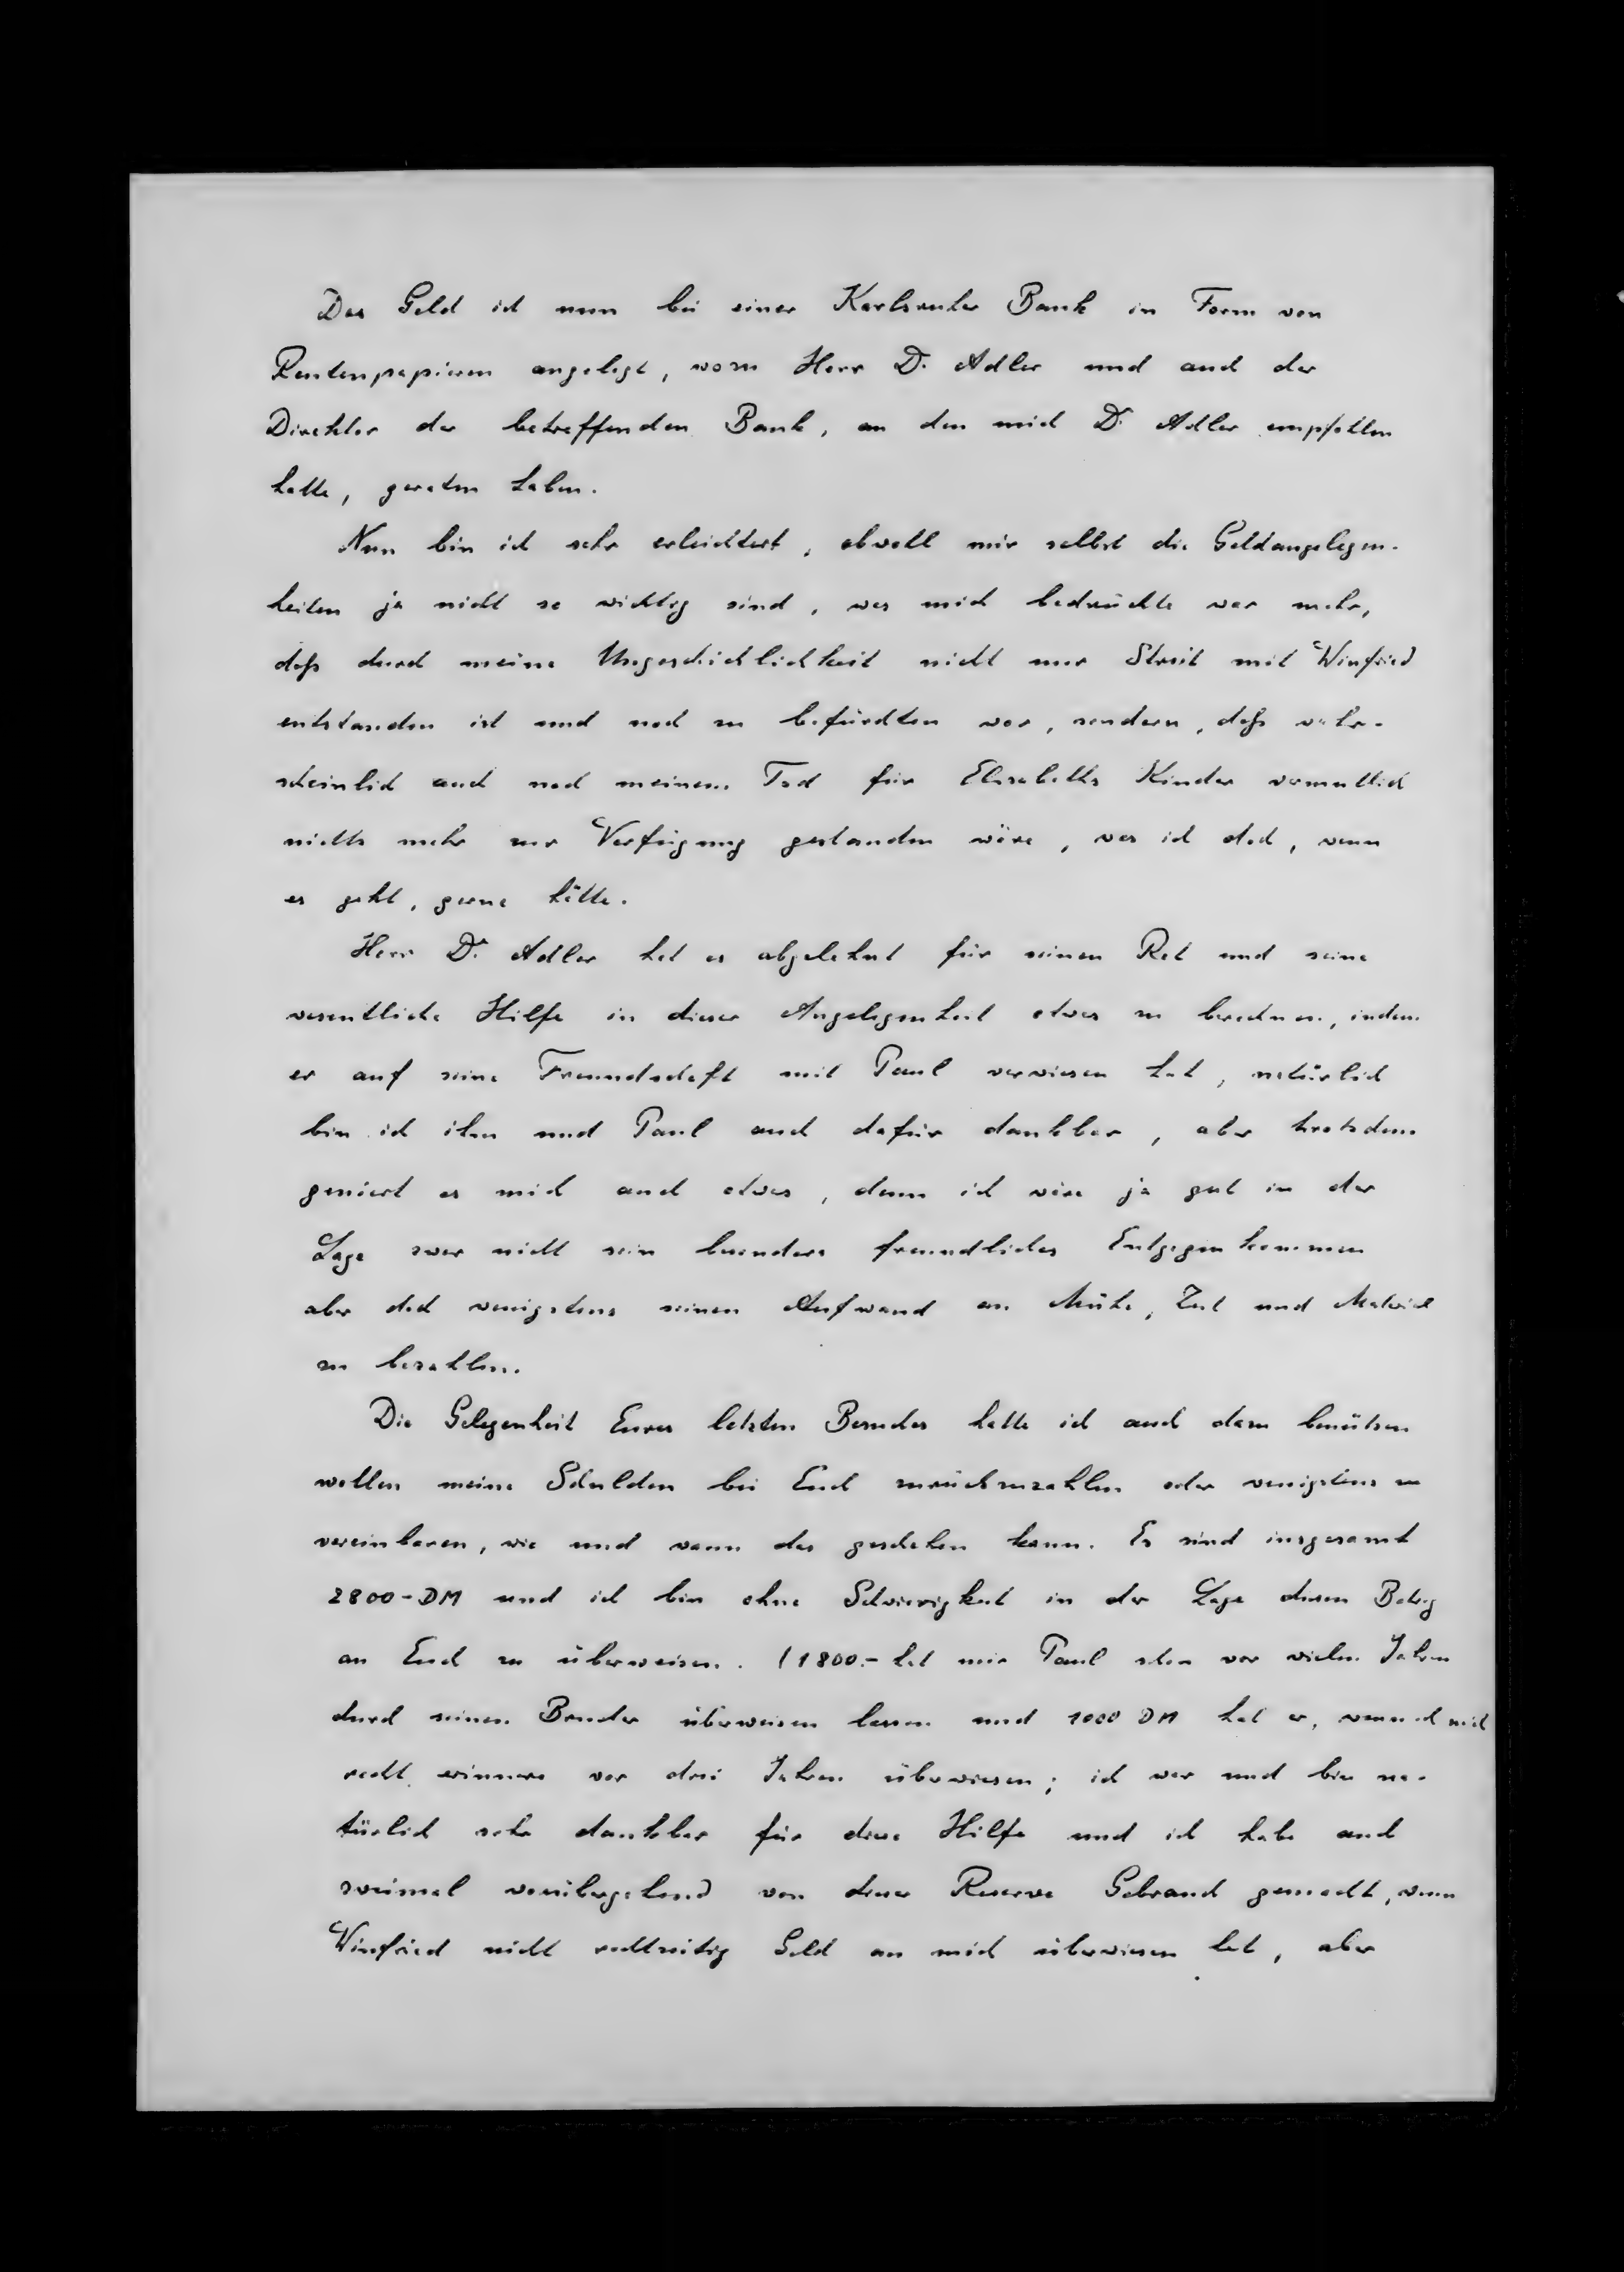 Das Geld ist nun bei einer Karlsruher Bank in Form von
Rentenpapieren angelegt, wozu Herr Dr. Adler und auch der
Direktor der betreffenden Bank, an den mich Dr. Adler empfohlen
hatte, geraten haben.
Nun bin ich sehr erleichtert, obwohl mir selbst die Geldangelegen-
heiten ja nicht so wichtig sind, was mich bedrückte war mehr,
daß durch meine Ungeschicklichkeit nicht nur Streit mit Winfried
entstanden ist und noch zu befürchten war, sondern, daß wahr-
scheinlich auch nach meinem Tod für Elisabeths Kinder vermutlich
nichts mehr zur Verfügung gestanden wäre, was ich doch, wenn
es geht, gerne hätte.
Herr Dr. Adler hat es abgelehnt für seinen Rat und seine
wesentliche Hilfe in dieser Angelegenheit etwas zu berechnen, indem
er auf seine Freundschaft mit Paul verwiesen hat, natürlich
bin ich ihm und Paul auch dafür dankbar, aber trotzdem
geniert es mich auch etwas, denn ich wäre ja gut in der
Lage zwar nicht sein besonders freundliches Entgegenkommen
aber doch wenigstens seinen Aufwand an Mühe, Zeit und Material
zu bezahlen.
Die Gelegenheit Eures letzten Besuches hatte ich auch dazu benützen
wollen meine Schulden bei Euch zurückzuzahlen oder wenigstens zu
vereinbaren, wie und wann das geschehen kann. Es sind insgesamt
2800-DM und ich bin ohne Schwierigkeit in der Lage diesen Betrag
an Euch zu überweisen. (1800.- hat mir Paul schon vor vielen Jahren
durch seinen Bruder überweisen lassen und 1000 DM hat er, wenn ich mich
recht erinnere vor drei Jahren überwiesen; ich war und bin na-
türlich sehr dankbar für diese Hilfe und ich habe auch
zweimal vorübergehend von dieser Reserve Gebrauch gemacht, wenn
Winfried nicht rechtzeitig Geld an mich überwiesen hat, aber